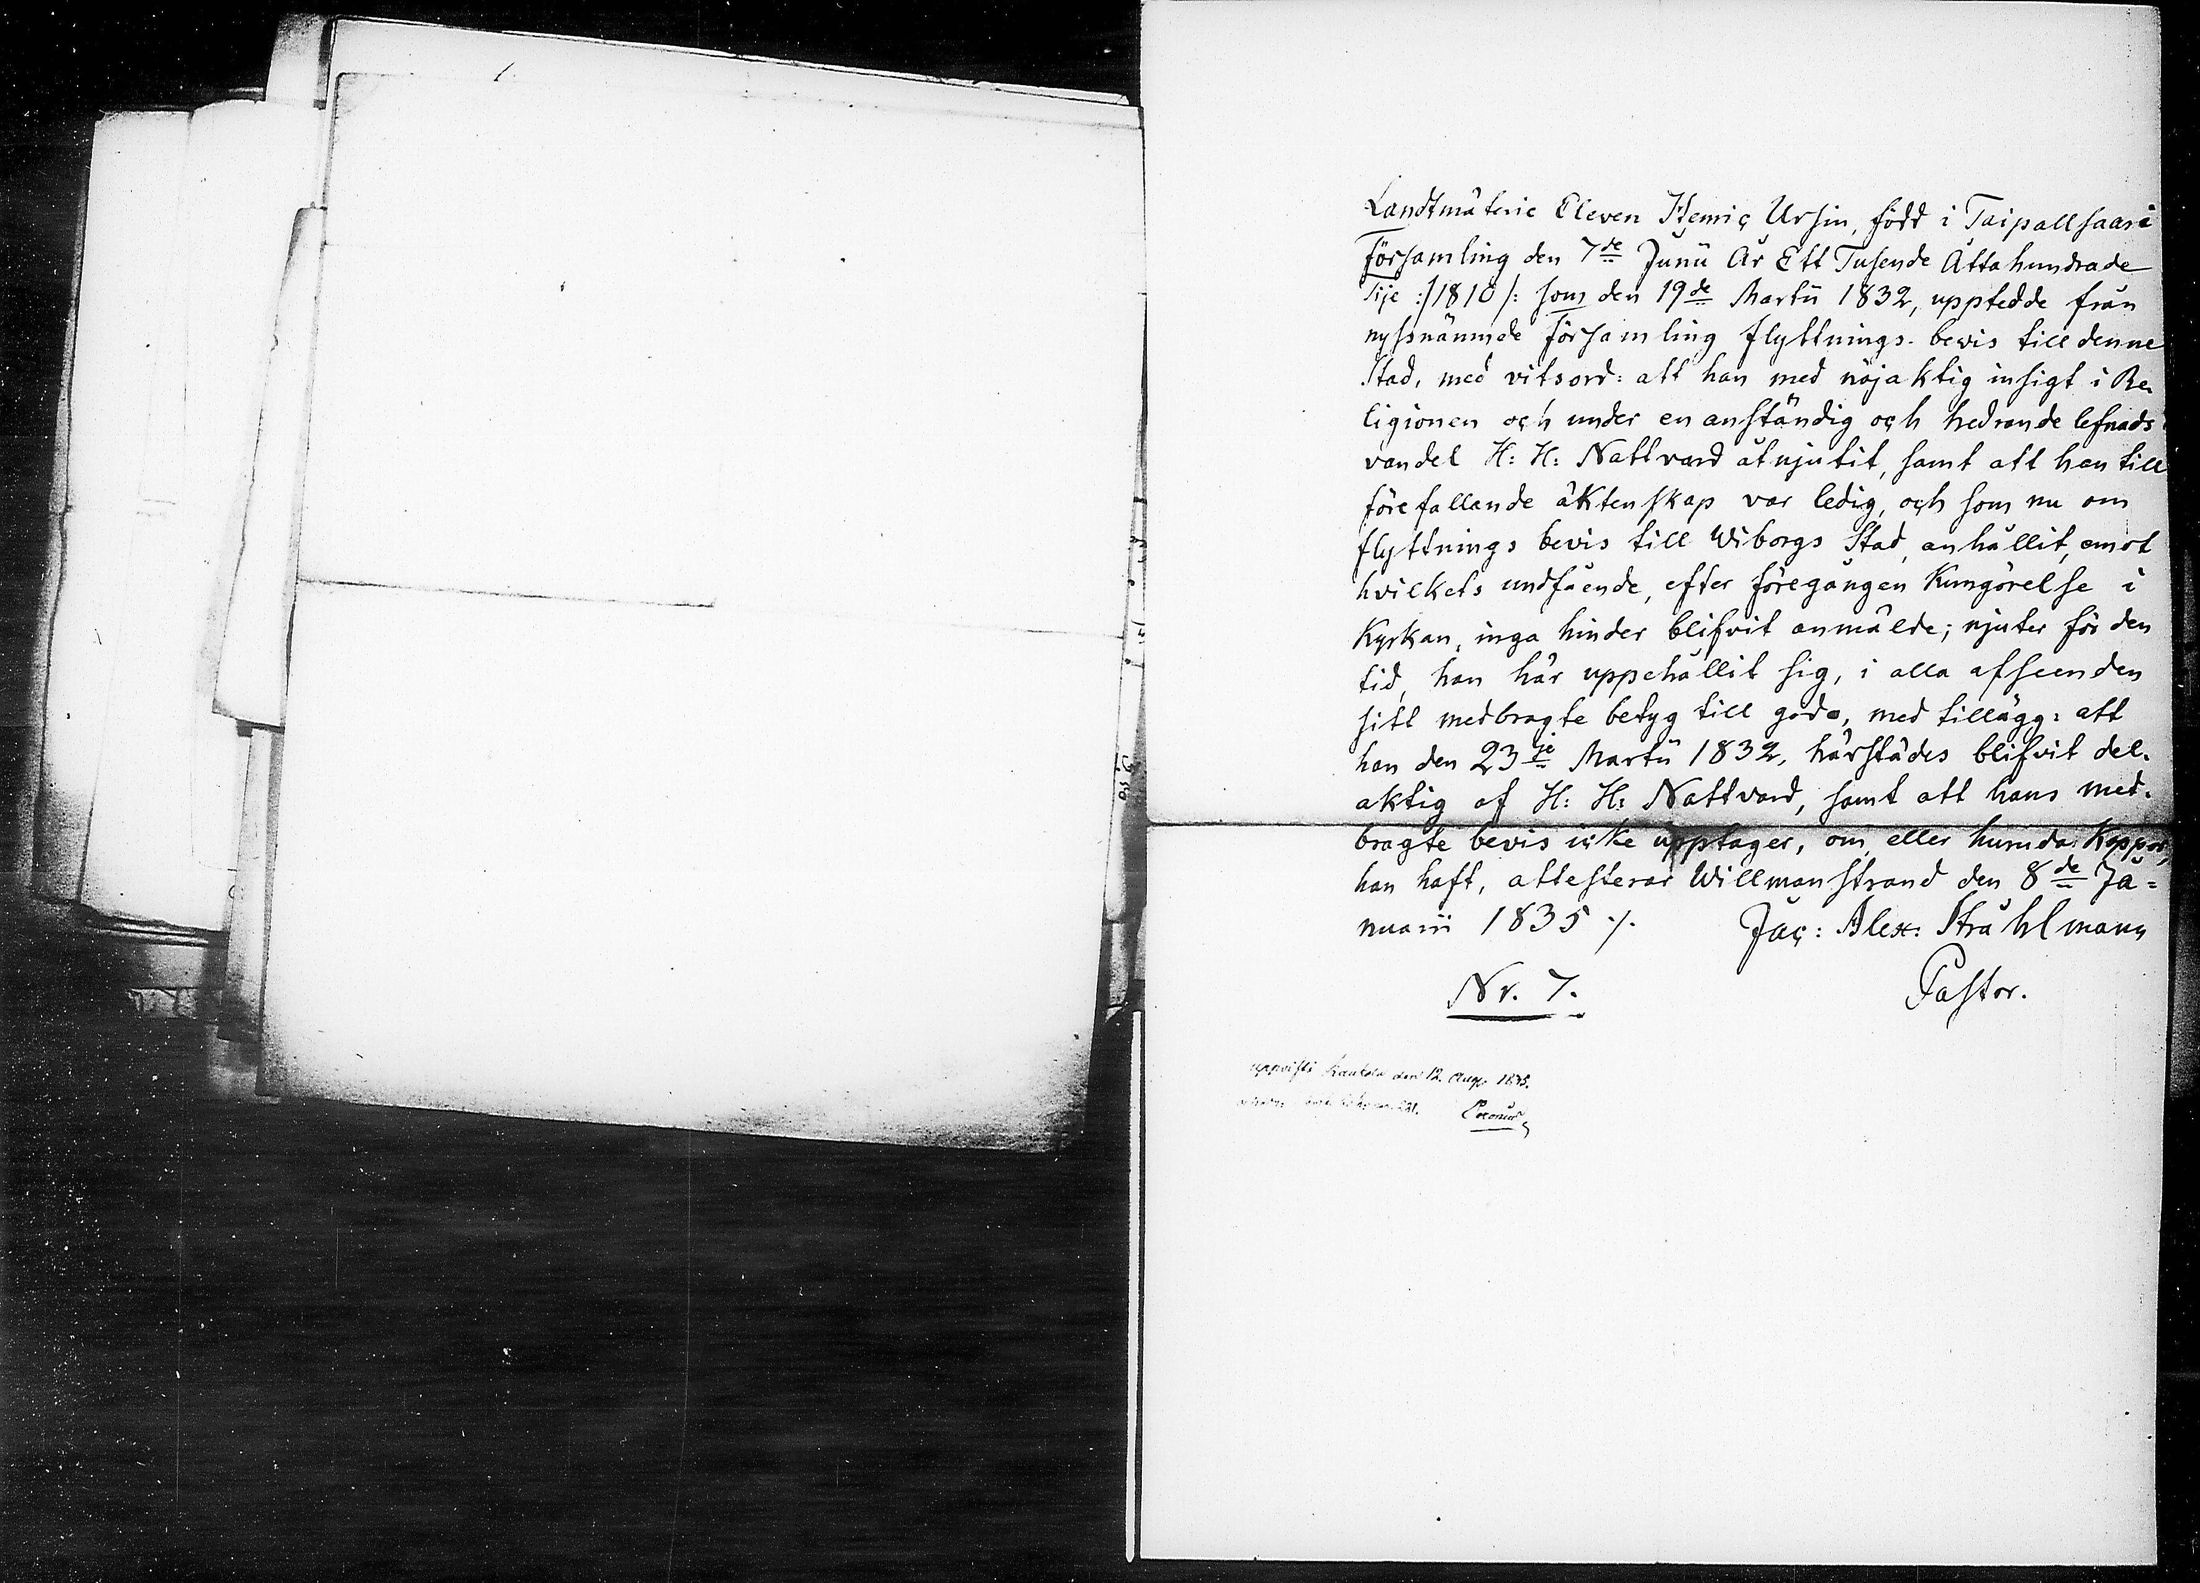 Landtmäterie Eleven Henric Ursin, född i Taipallsaari
Församling den 7de Junii År Ett Tusende Åttahundrade
Tije :/1810/: som den 19de Martii 1832, upptedde från
nyssnämnde församling flyttnings-bevis till denne
Stad, med vitsord: att han med nöjaktig insigt i Re-
ligionen och under en anständig och hedrande lefnads
vandel H: H: Nattvard åtnjutit, samt att han till
förefallande äktenskap var ledig, och som nu om
flyttnings bevis till Wiborgs Stad, anhållit, emot
hvilkets undfående, efter föregången Kungörelse i
Kyrkan, inga hinder blifvit anmälde; njuter för den
tid, han här uppehållit sig, i alla afseenden
sitt medbragte betyg till godo, med tillägg: att
han den 23je Martii 1832, härstädes blifvit del-
aktig af H: H: Nattvard, samt att hans med-
bragte bevis icke upptager, om eller hurudan Koppor,
han haft, attesterar Willmanstrand den 8de Ja=
nuarii 1835 ./. Jac: Alex: Stråhlmann
Pastor.
Nr. 7.
uppvist i Kaukola den 12. Aug. 1835.